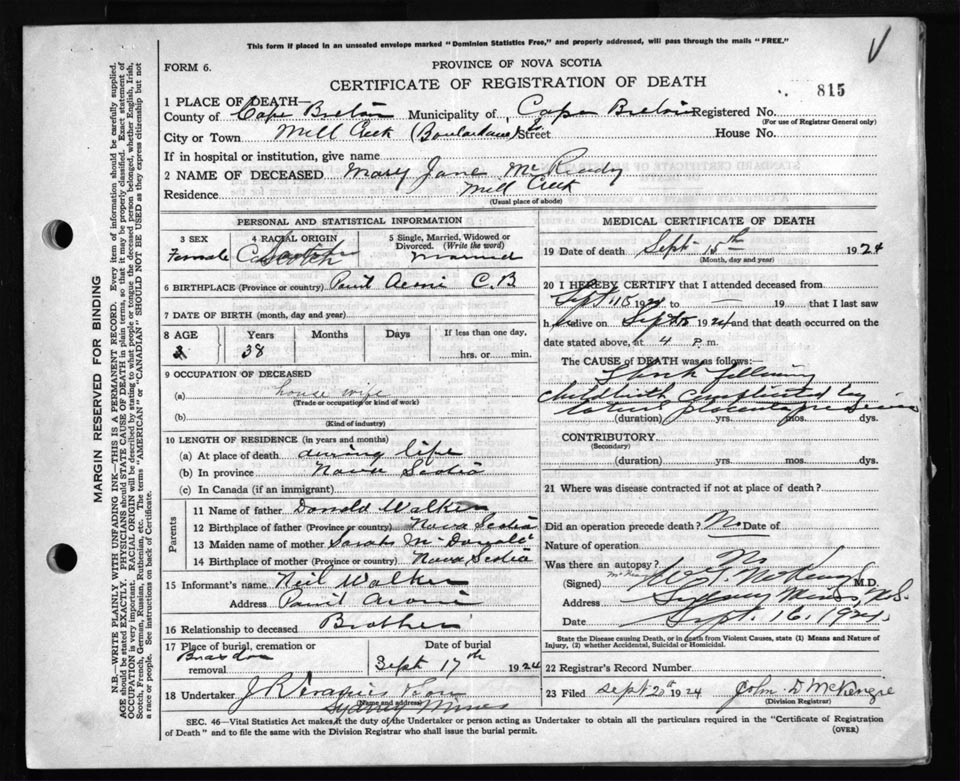 This form if placed in an unsealed envelope marked "Dominion Statistics Free," and properly addressed, will pass through the mails "FREE."
FORM 6.
PROVINCE OF NOVA SCOTIA
CERTIFICATE OF REGISTRATION OF DEATH
815
1 PLACE OF DEATH—
County of Cape Breton Municipality of Cape Breton Registered No.
(For use of Registrar General only)
City or Town Mill Creek (Boulardarie) Street House No.
If in hospital or institution, give name
2 NAME OF DECEASED Mary Jane
Residence Mill Creek
(Usual place of abode)
PERSONAL AND STATISTICAL INFORMATION
3 SEX
Female
4 RACIAL ORIGIN
Scotch
5 Single, Married, Widowed or Divorced. (Write the word)
Married
6 BIRTHPLACE (Province or country) Point Aconi C.B
7 DATE OF BIRTH (month, day and year)
8 AGE Years Months Days If less than one day,
38 hrs. or min.
9 OCCUPATION OF DECEASED
(a) house wife
(Trade or occupation or kind of work)
(b)
(Kind of industry)
10 LENGTH OF RESIDENCE (in years and months)
(a) At place of death during life
(b) In province Nova Scotia
(c) In Canada (if an immigrant)
Parents
11 Name of father Donald Walker
12 Birthplace of father (Province or country) Nova Scotia
13 Maiden name of mother Sarah McDonald
14 Birthplace of mother (Province or country) Nova Scotia
15 Informant's name Neil Walker
Address Point Aconi
16 Relationship to deceased Brother
17 Place of burial, cremation or removal
Date of burial
Sept 17th 1924
18 Undertaker
(Name and address)
Sydney Mines
MEDICAL CERTIFICATE OF DEATH
19 Date of death Sept 15th 1924
(Month, day and year)
20 I HEREBY CERTIFY that I attended deceased from
Sept. 15 1924 to — 19 that I last saw
h alive on Sept 15 1924 and that death occurred on the
date stated above, at 4 P.m.
The CAUSE of DEATH was as follows:
Shock following
childbirth complicated by
placenta praevia
(duration) yrs. mos. dys.
CONTRIBUTORY.
(Secondary)
(duration) yrs. mos. dys.
21 Where was disease contracted if not at place of death?
Did an operation precede death? No Date of
Nature of operation
Was there an autopsy? No
(Signed) M.D.
Address Sydney Mines, N.S.
Date Sept. 16. 1924.
State the Disease causing Death, or in death from Violent Causes, state (1) Means and Nature of Injury, (2) whether Accidental, Suicidal or Homicidal.
22 Registrar's Record Number
23 Filed Sept 20th 1924 John D McKenzie
(Division Registrar)
SEC. 46—Vital Statistics Act makes it the duty of the Undertaker or person acting as Undertaker to obtain all the particulars required in the "Certificate of Registration
of Death" and to file the same with the Division Registrar who shall issue the burial permit.
(OVER)
MARGIN RESERVED FOR BINDING
N.B.—WRITE PLAINLY WITH UNFADING INK—THIS IS A PERMANENT RECORD. Every item of information should be carefully supplied.
AGE should be stated EXACTLY. PHYSICIANS should STATE CAUSE OF DEATH in plain terms, so that it may be properly classified. Exact statement of
OCCUPATION is very important. RACIAL ORIGIN will be described by stating to what people or tongue the deceased person belonged, whether English, Irish,
Scotch, French, German, Russian, Ruthenian, etc. The terms "AMERICAN" or "CANADIAN" SHOULD NOT BE USED as they express citizenship but not
a race or people. See instructions on back of Certificate.